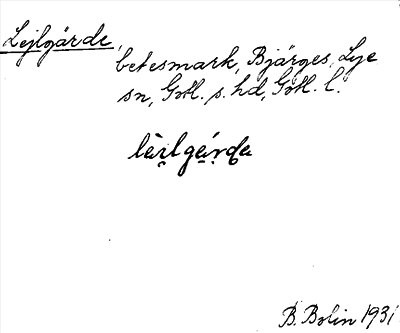 Lejlgårde,
betesmark, Bjärges, Lye
sn, Gotl. s. hd, Gotl. l.
B. Bolin 1931